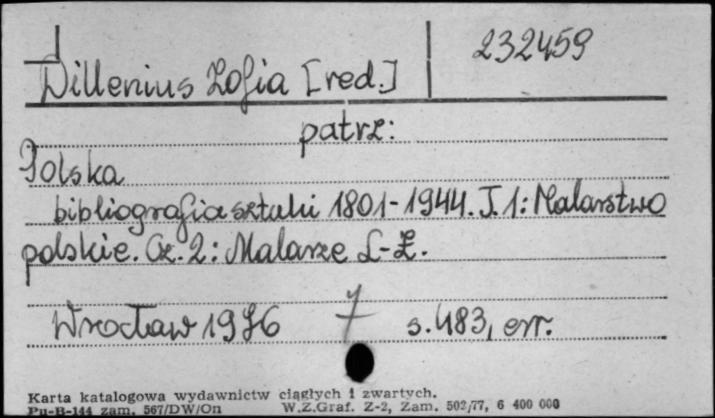 232459
Dillenius Zofia [red.]
patrz:
Polska
bibliografia sztuki 1801-1944. T.1: Malarstwo
polskie. Cz. 2: Malarze L-Ż.
Wrocław 1976 7 s. 483, err.
Karta katalogowa wydawnictw ciągłych i zwartych.
Pu-B-144 zam. 567/DW/On W.Z.Graf. Z-2, Zam. 502/77, 6 400 000